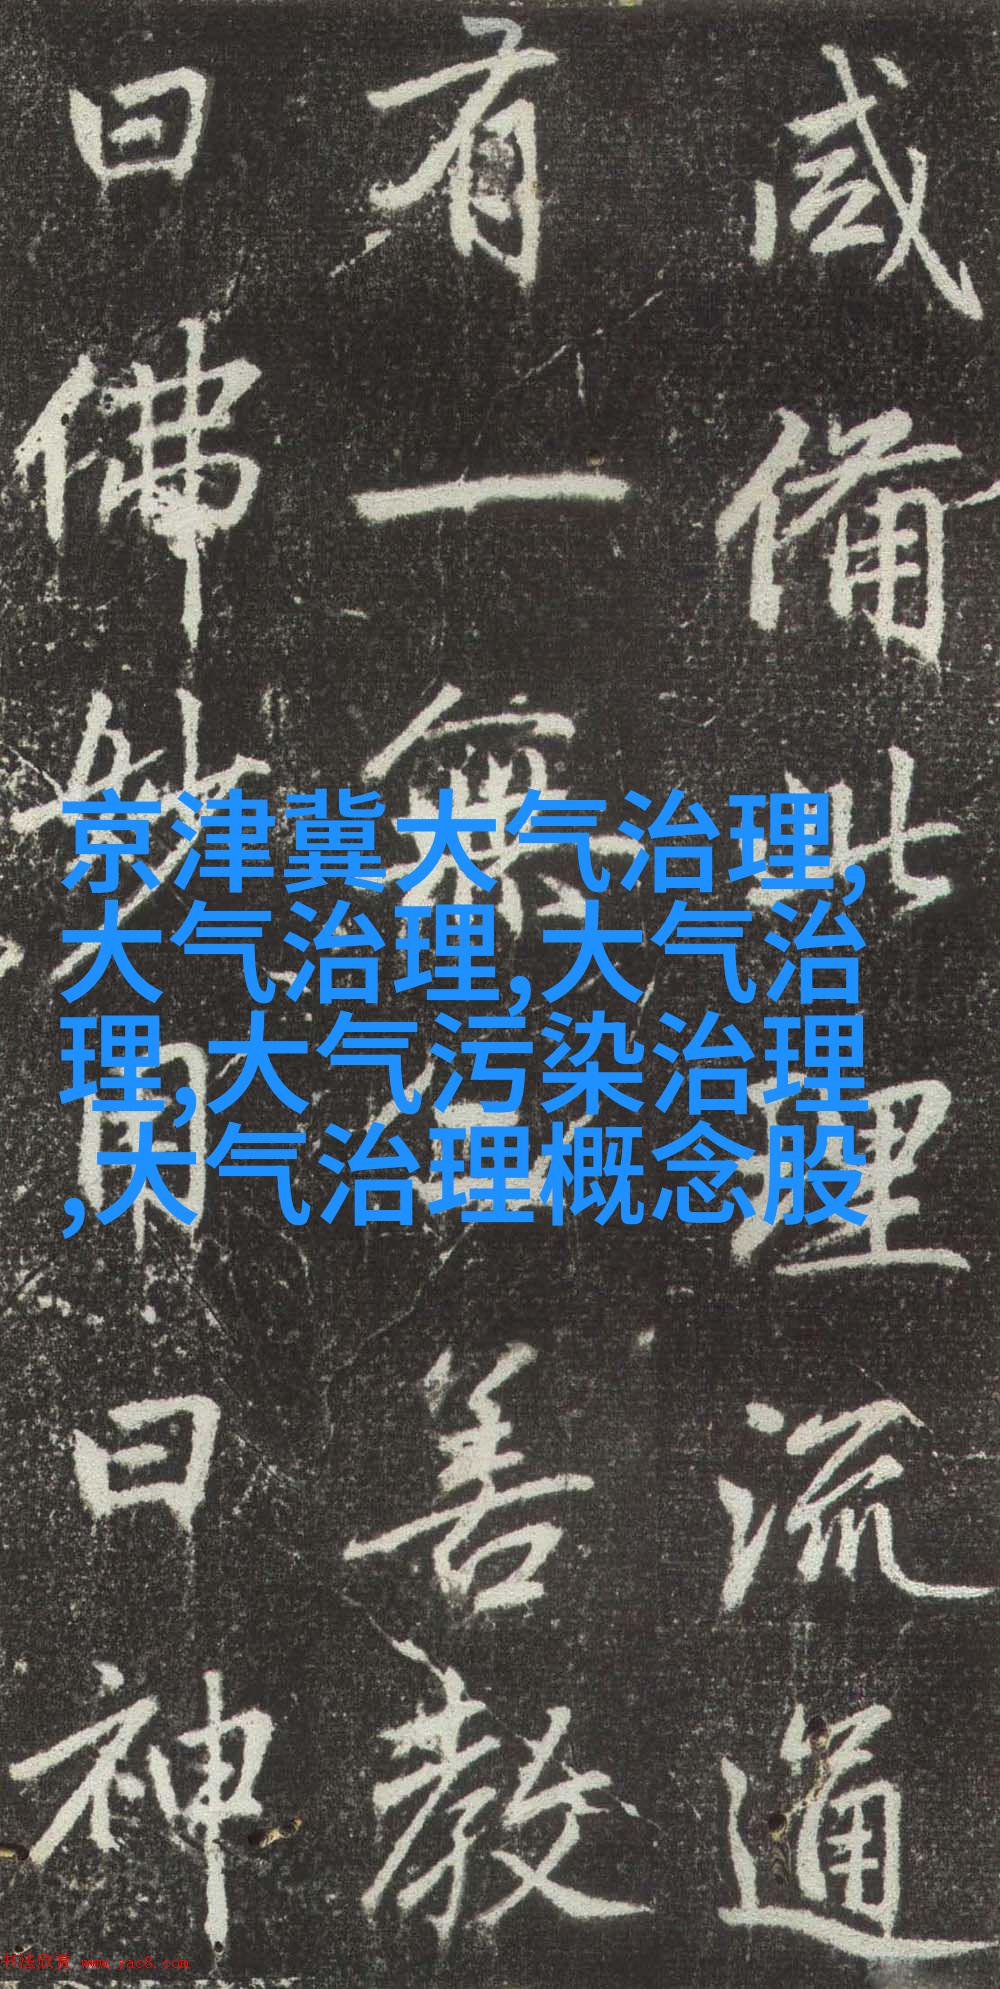 咸備此理流通
有一無善教
曰佛妙用曰神
京津冀大气治理,
大气治理,大气治
理,大气污染治理
,大气治理概念股
书法欣赏 www.yac8.com